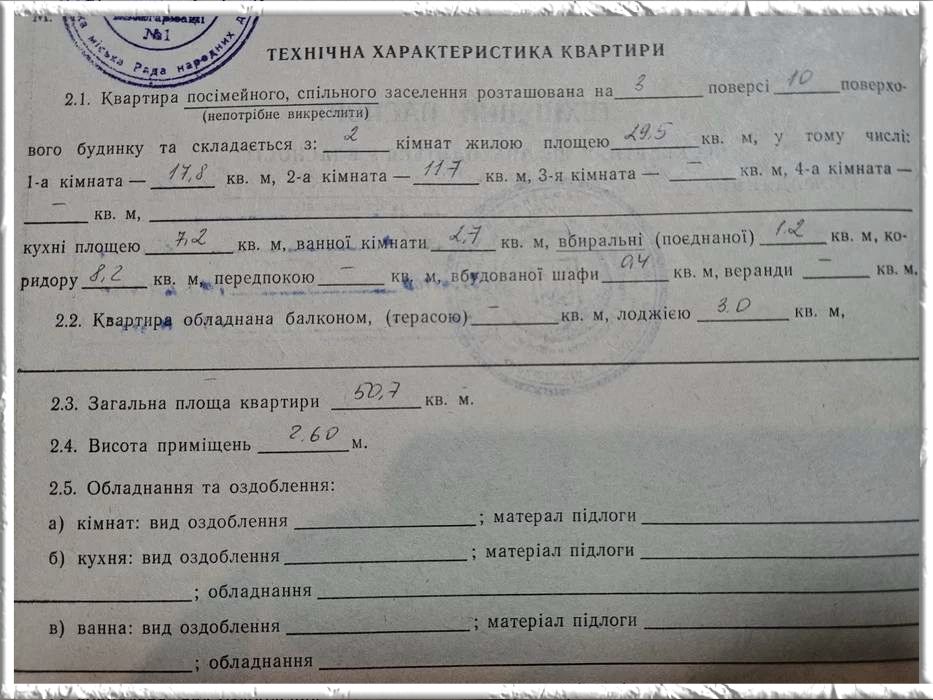 М.
№1
міська Рада народних
ТЕХНІЧНА ХАРАКТЕРИСТИКА КВАРТИРИ
2.1. Квартира посімейного, спільного заселення розташована на 3 поверсі 10 поверхо-
(непотрібне викреслити)
вого будинку та складається з: 2 кімнат жилою площею 29.5 кв. м, у тому числі:
1-а кімната — 17,8 кв. м, 2-а кімната — 11.7 кв. м, 3-я кімната — – кв. м, 4-а кімната —
– кв. м,
кухні площею 7,2 кв. м, ванної кімнати 2,7 кв. м, вбиральні (поєднаної) 1.2 кв. м, ко-
ридору 8,2 кв. м, передпокою – кв. м, вбудованої шафи 0,4 кв. м, веранди – кв. м,
2.2. Квартира обладнана балконом, (терасою) – кв. м, лоджією 3.0 кв. м,
2.3. Загальна площа квартири 50,7 кв. м.
2.4. Висота приміщень 2.60 м.
2.5. Обладнання та оздоблення:
а) кімнат: вид оздоблення ; матерал підлоги
б) кухня: вид оздоблення ; матеріал підлоги
; обладнання
в) ванна: вид оздоблення ; матеріал підлоги
; обладнання